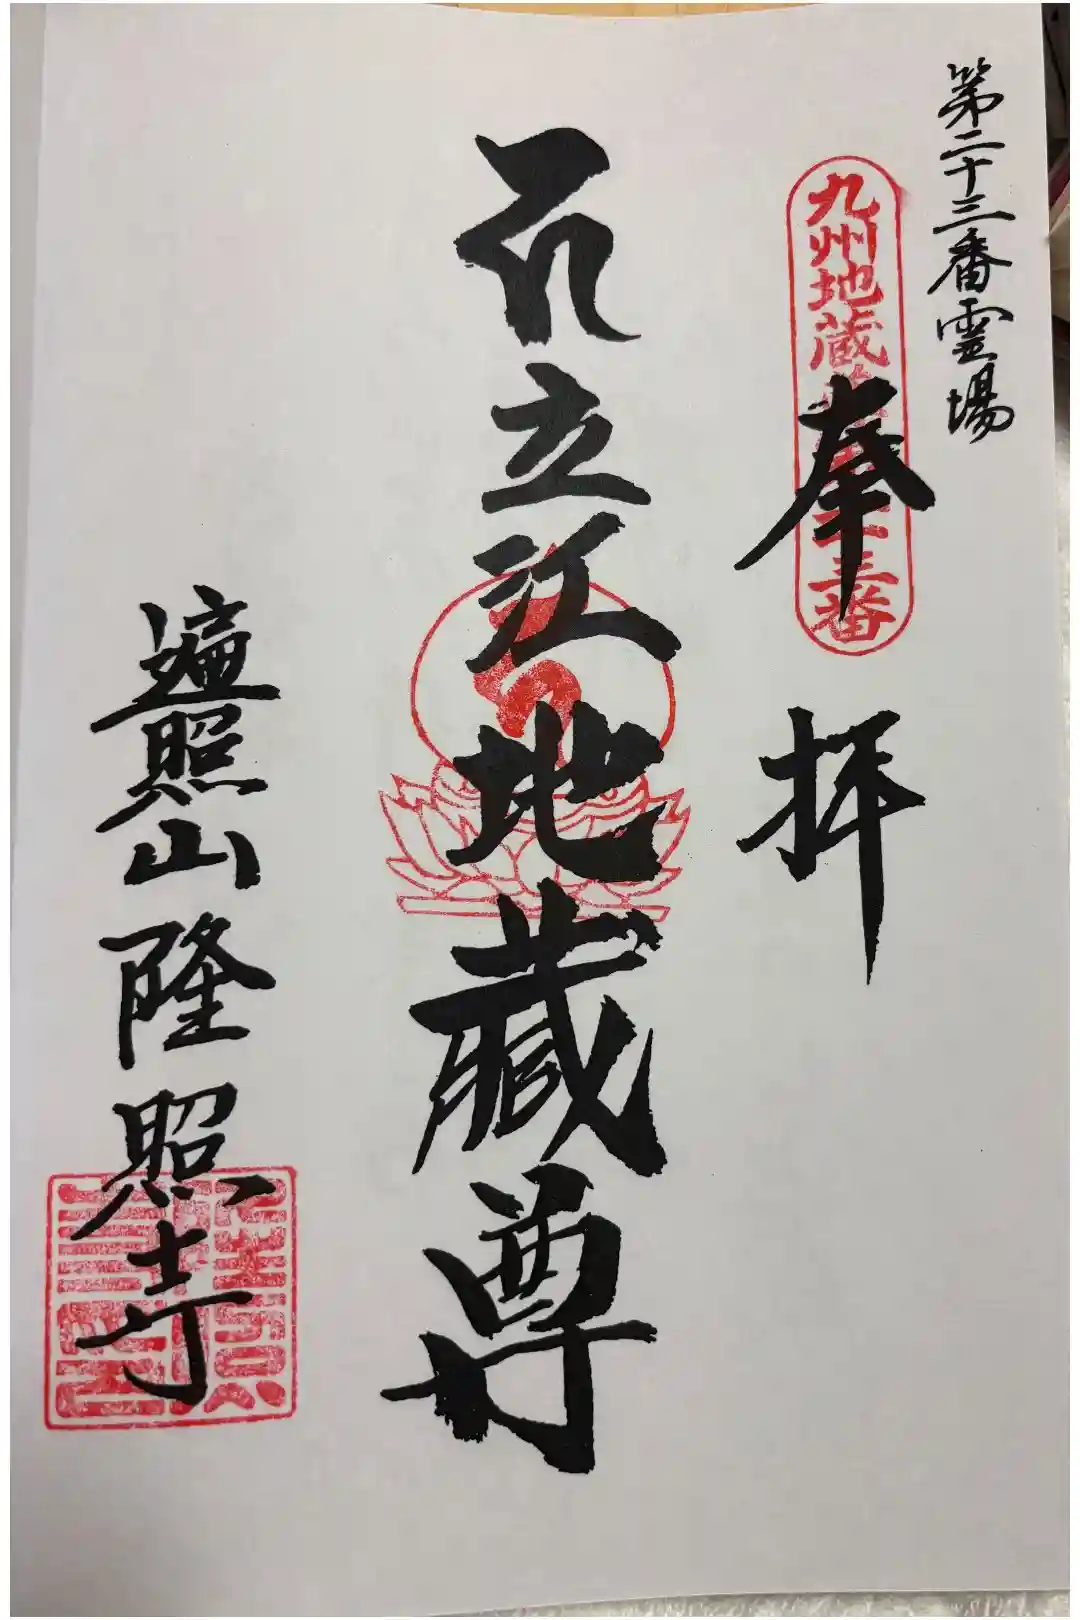 第二十三番霊場
九州地蔵 三番
奉拝
立江地蔵尊
遍照山隆照寺